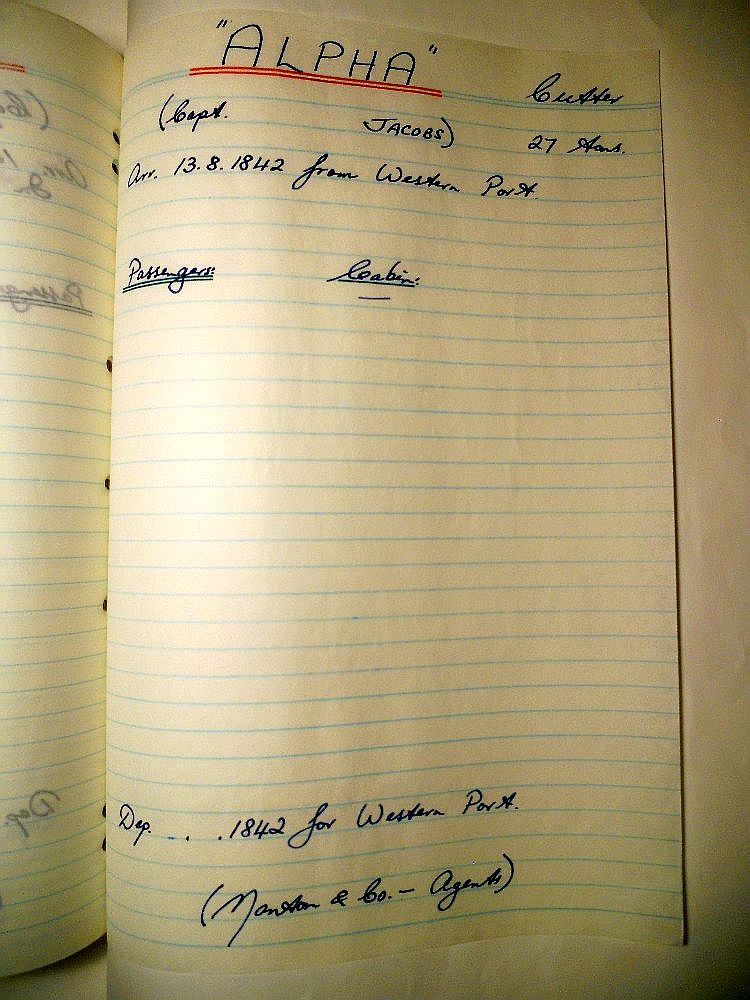 "ALPHA"
Cutter
(Capt. JACOBS) 27 tons.
Arr. 13.8.1842 from Western Port.
Passengers: Cabin:
—
Dep. . .1842 for Western Port.
(Manton & Co. – Agents)